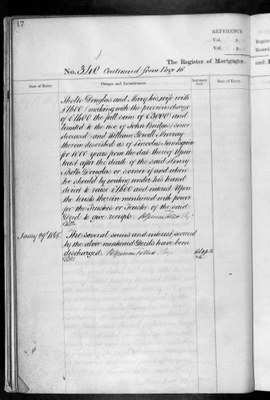 17
REFERENCE
Vol. p.
Vol. p.
The Register of Mortgages,
No. 340 Continued from Page 16
Date of Entry.
Charges and Incumbrances.
Date of Entry.
Sholto Douglas and Mary his wife with
£1600 (making with the previous charge
of £1400 the full sum of £3000) and
limited to the use of John
deceased and William Powell Murray
therein described as of Lincolns Inn
for 1000 years from the date thereof Upon
trust after the death of the said Henry
Sholto Douglas or sooner if and when
he should by writing under his hand
direct to raise £1600 and interest Upon
the trusts therein mentioned with power
for the Trustees or Trustee of the said
Deed to give receipts.
January 29th
The several sums and interest secured
by the above mentioned Deeds have been
discharged.